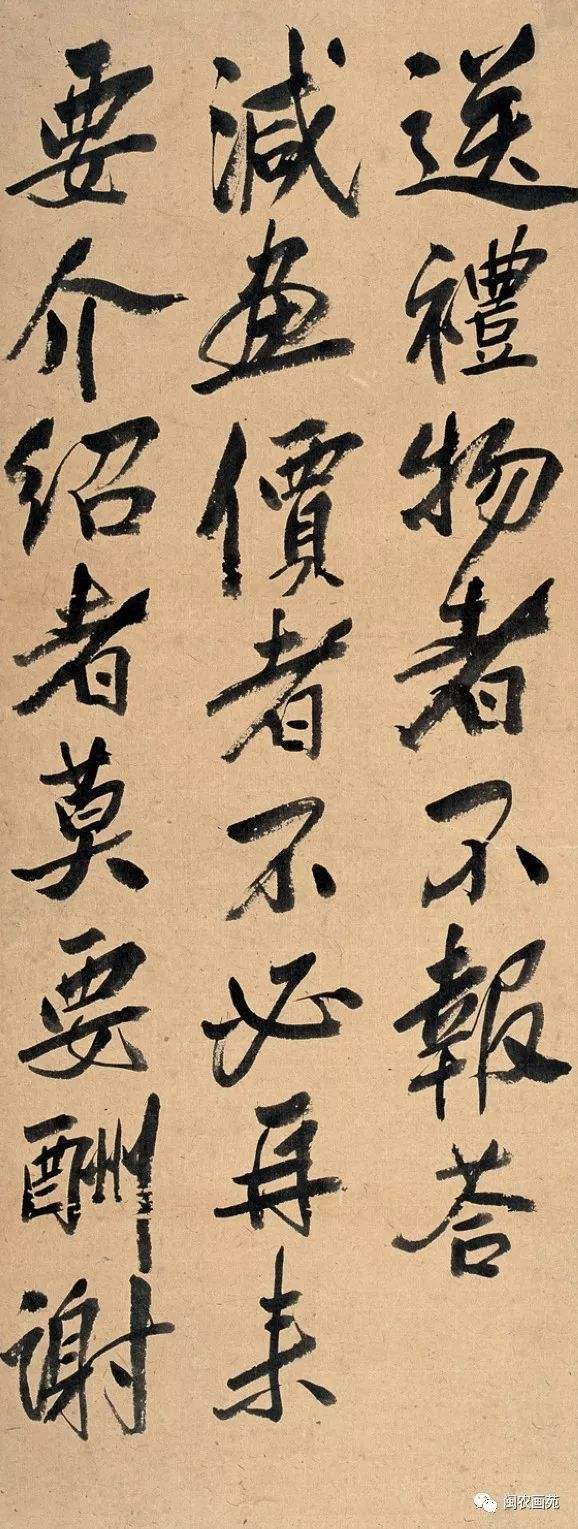 送禮物者不報荅
減畫價者不必再来
要介紹者莫要酬謝
闽农画苑